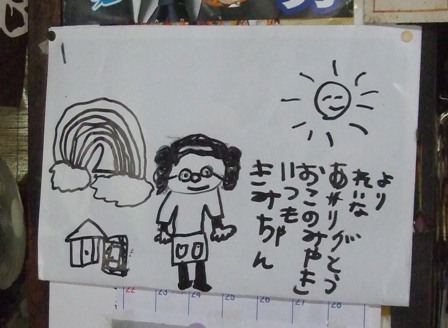 きみちゃん
いつも
おこのみやき
ありがとう
れいな
より
22 23 24 25 26 27 28